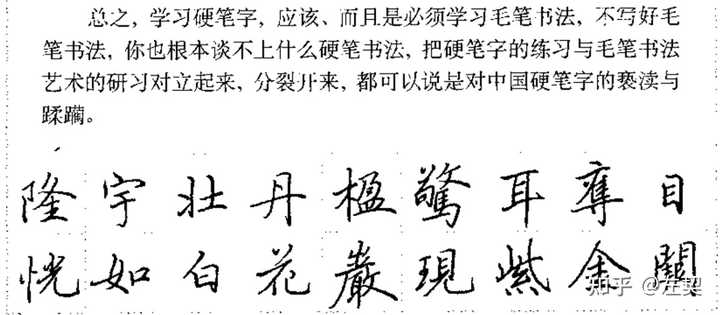 总之，学习硬笔字，应该、而且是必须学习毛笔书法，不写好毛
笔书法，你也根本谈不上什么硬笔书法，把硬笔字的练习与毛笔书法
艺术的研习对立起来，分裂开来，都可以说是对中国硬笔字的亵渎与
蹂躏。
隆宇壮丹楹驚耳奪目
恍如白花巖現紫金闕
知乎 @左契